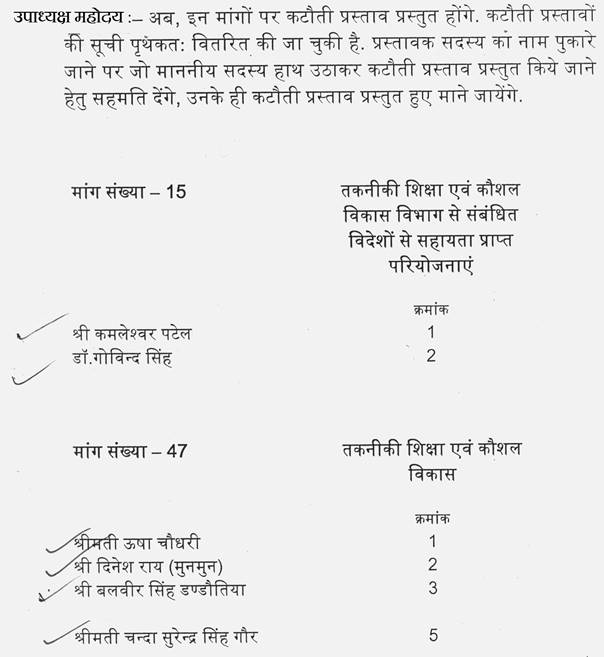 उपाध्यक्ष महोदय :– अब, इन मांगों पर कटौती प्रस्ताव प्रस्तुत होंगे. कटौती प्रस्तावों
की सूची पृथकत: वितरित की जा चुकी है. प्रस्तावक सदस्य का नाम पुकारे
जाने पर जो माननीय सदस्य हाथ उठाकर कटौती प्रस्ताव प्रस्तुत किये जाने
हेतु सहमति देंगे, उनके ही कटौती प्रस्ताव प्रस्तुत हुए माने जायेंगे.
मांग संख्या – 15 तकनीकी शिक्षा एवं कौशल
विकास विभाग से संबंधित
विदेशों से सहायता प्राप्त
परियोजनाएं
क्रमांक
श्री कमलेश्वर पटेल 1
डॉ.गोविन्द सिंह 2
मांग संख्या – 47 तकनीकी शिक्षा एवं कौशल
विकास
क्रमांक
श्रीमती ऊषा चौधरी 1
श्री दिनेश राय (मुनमुन) 2
श्री बलवीर सिंह डण्डौतिया 3
श्रीमती चन्दा सुरेन्द्र सिंह गौर 5